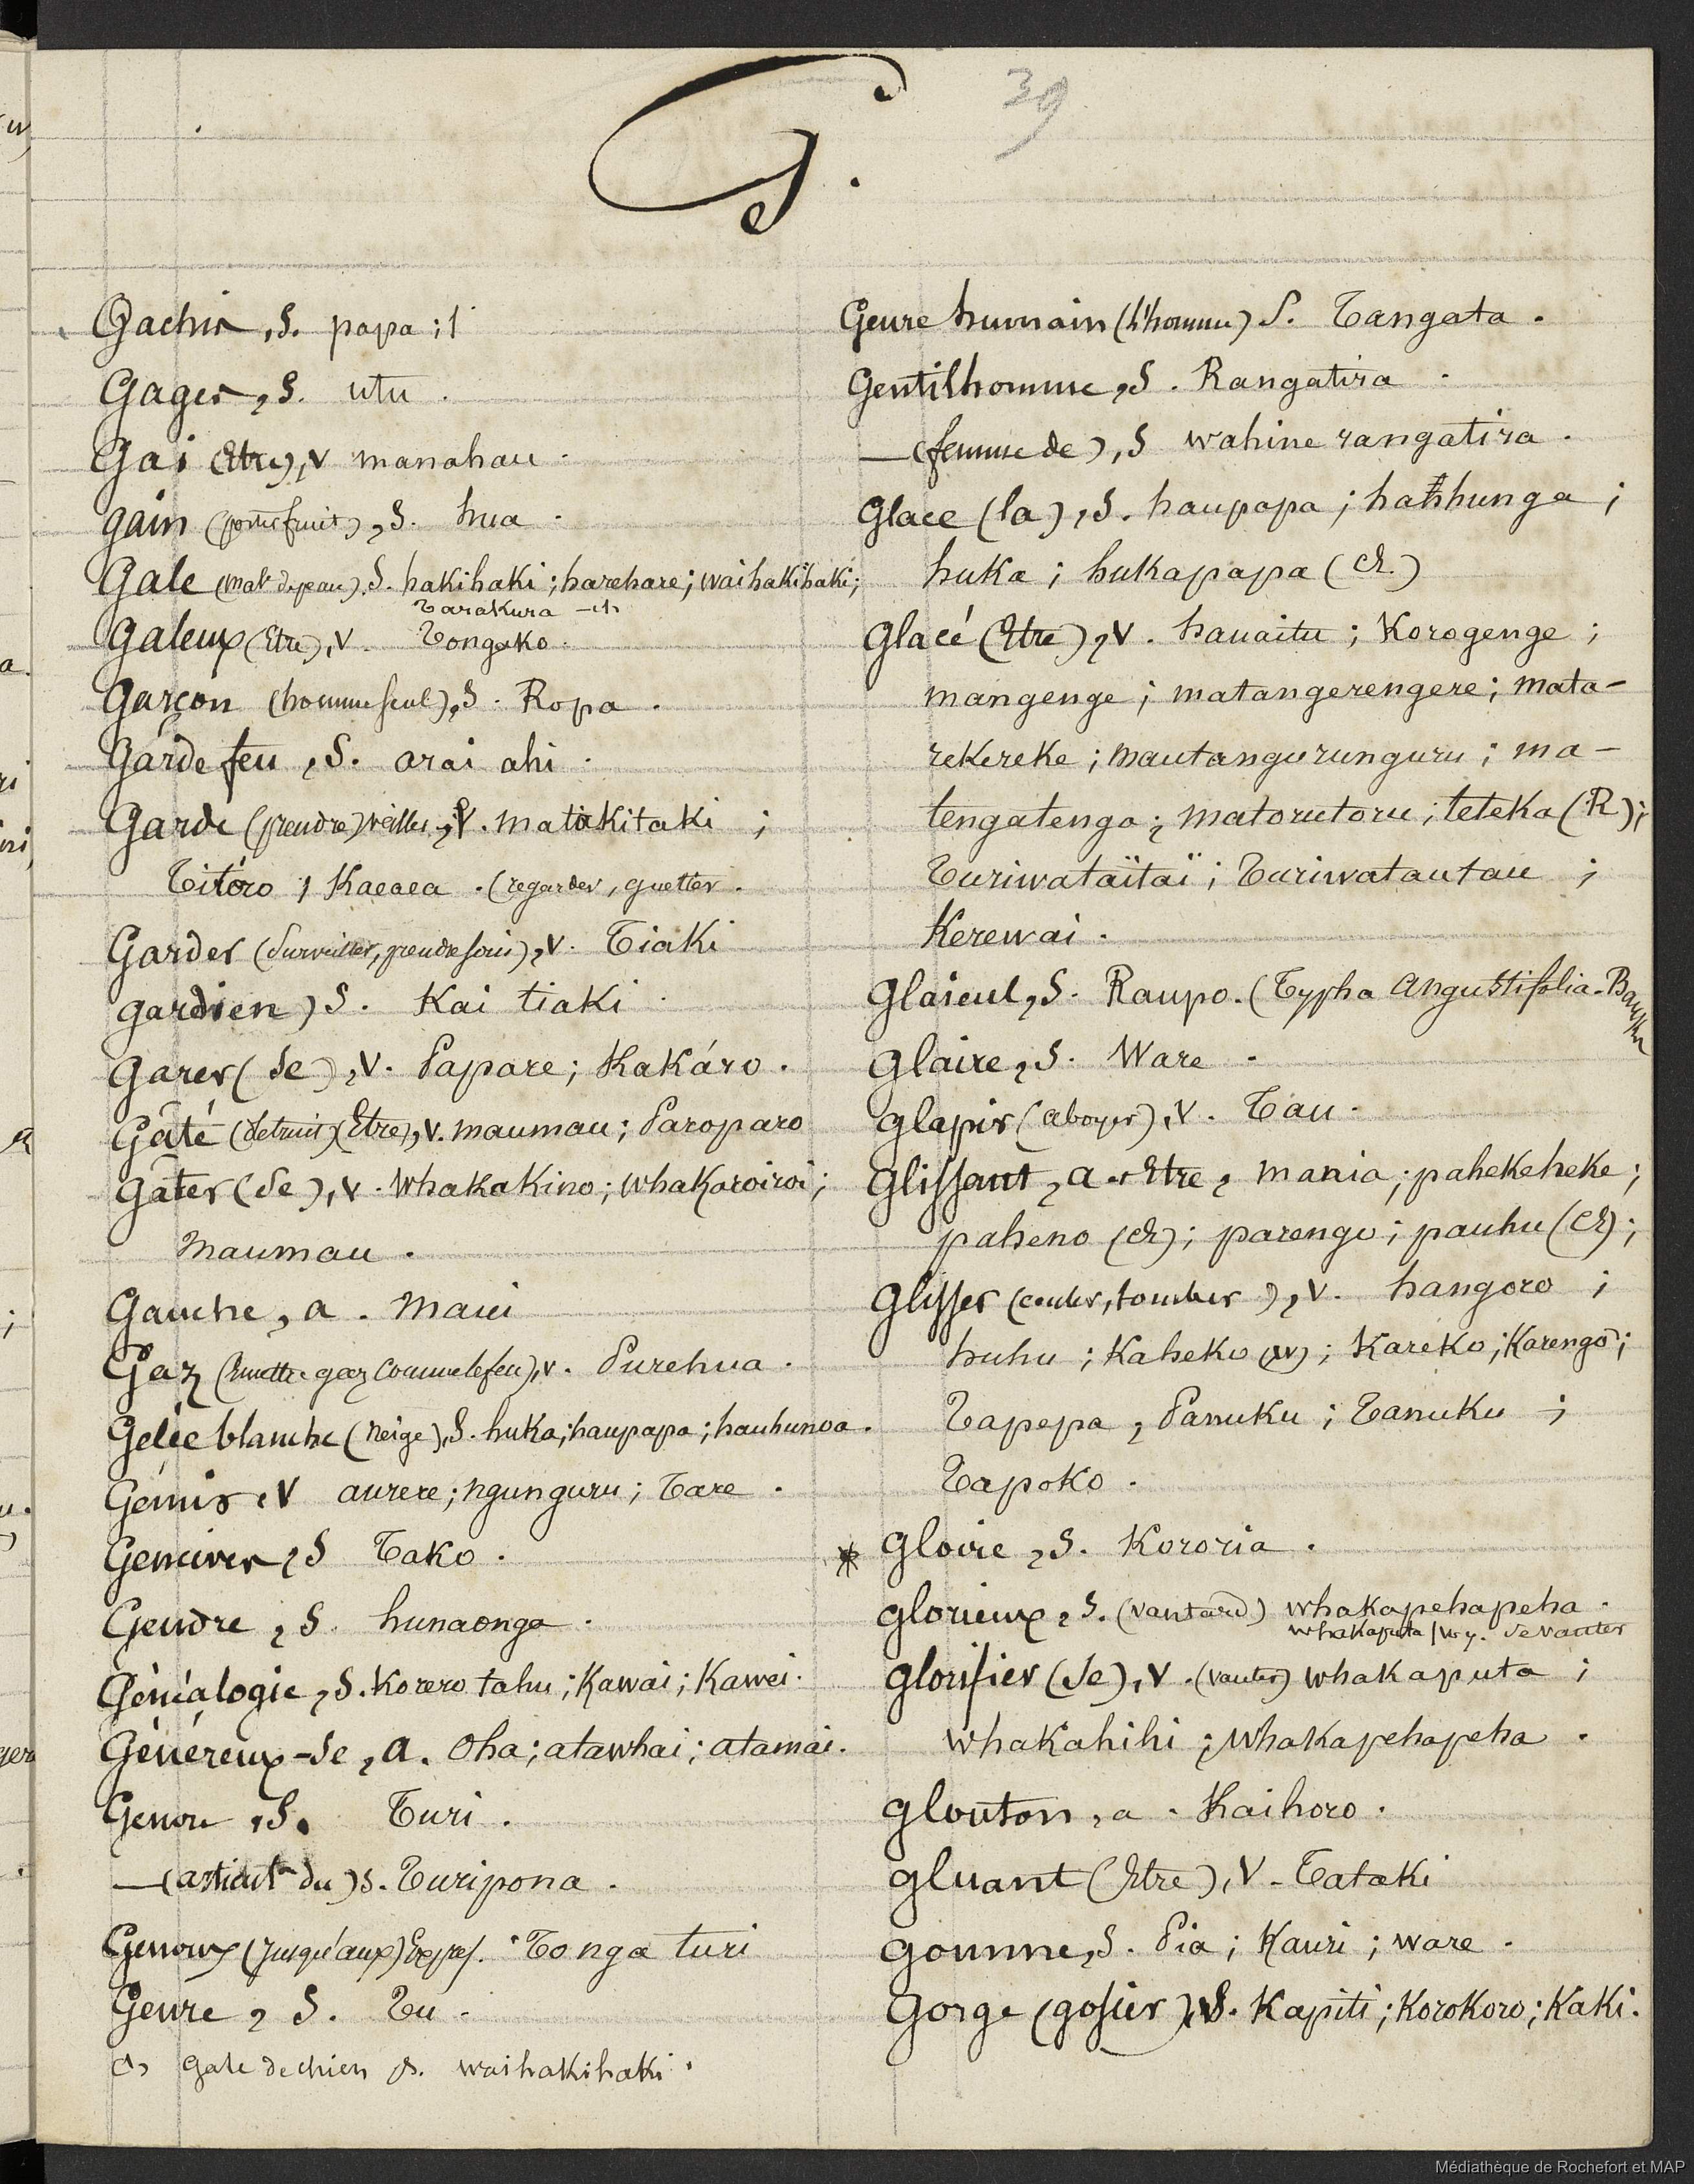 39
G.
Gachis, S. papa ;
Gages, S. utu .
Gai (Etre), v manahau .
gain (porter fruit), S. hua .
Gale (mal de peau). S. hakihaki ; harehare ; waihakihaki ;
Tarakura
Galeux (Etre), V. Tongako .
Garçon (homme seul), S. Ropa .
Garde feu , S. arai ahi .
Garde (prendre) veiller, V. matakitaki ;
Titóro ; Kaeaea . (regarder, guetter .
Garder (Surveiller, prendre soin), v. Tiaki
gardien) S. Kai tiaki .
Garer (Se), V. Papare ; Kakáro .
Gâté (détruit) (Etre), v. maumau ; Paroparo
Gâter (Se), v. whakakino ; whakaroiroi ;
maumau .
Gauche, a . maui
Gaz (émettre gaz comme le feu), v. Purehua .
Gelée blanche (neige), S. huka ; haupapa ; hauhunoa .
Gémir, V aurere ; ngunguru ; Tare .
Gencives, S Tako .
Gendre, S. hunaonga .
Généalogie, S. Korero tahu ; Kawai ; Kawei .
Généreux-se, a. Oha ; atawhai ; atamai .
Genou, S. Turi .
— (articult du) S. Turipona .
Genoux (jusqu'aux) Expres. Tonga turi
Genre, S. Tu .
gale de chien S. waihakihaki .
Genre humain (l'homme) S. Tangata .
Gentilhomme, S. Rangatira .
— (femme de), S wahine rangatira .
Glace (la), S. haupapa ; hauhunga ;
huka ; hukapapa (Ch.)
Glacé (Etre), V. hauaitu ; Korogenge ;
mangenge ; matangerengere ; mata-
rekereke ; mautangurunguru ; ma-
tengatenga ; matorutoru ; teteka (R) ;
Turiwataïtaï ; Turiwatautau ;
Kerewai .
Glaieul, S. Raupo . (Typha Angustifolia . Banks
Glaire, S. Ware .
glapir (aboyer), V. Tau .
Glissant, a. Etre, mania ; pahekeheke ;
paheno (Ch) ; parengo ; pauhu (Ch) ;
Glisser (couler, tomber), v. hangoro ;
huhu ; Kaheko (W) ; Kareko ; Karengo ;
Tapepa, Panuku ; Tanuku ;
Tapoko .
* Gloire, S. Kororia .
Glorieux, S. (vantard) whakapehapeha .
whakaputa | Voy. Se vanter
Glorifier (Se), V. (vanter) whakaputa ;
whakahihi ; whakapehapeha .
glouton, a . Kaihoro .
gluant (Etre), V. Tataki
gomme, S. Pia ; Kauri ; ware .
Gorge (gosier), S. Kapiti ; Korokoro ; Kaki .
Médiathèque de Rochefort et MAP